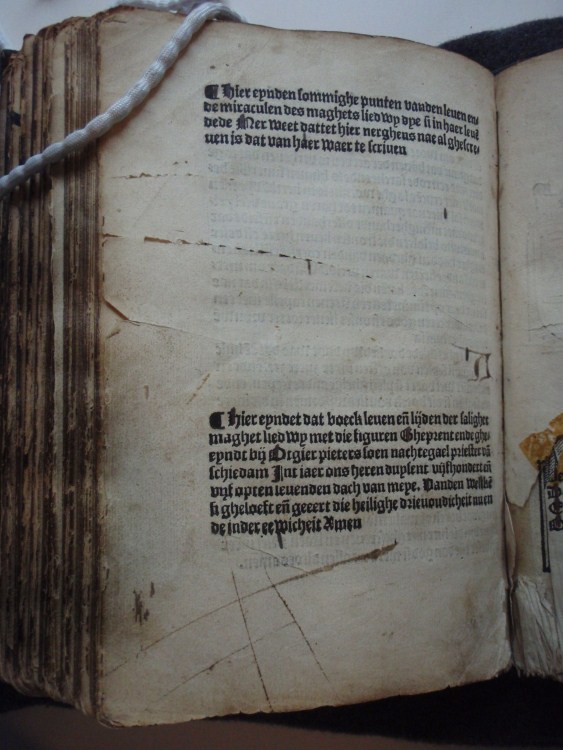 ¶ Hier eynden sommighe punten vanden leuen en̄
de miraculen des maghets liedwy dye si in haer leuē
dede Mer weet dattet hier nergheus nae al ghescre-
uen is dat van haer waer te scriuen
¶ hier eyndet dat boeck leuen en̄ lijden der salighet
maghet liedwy met die figuren Gheprent ende ghe
eyndt bij Otgier pieters soen nachtegael priester tʼ
schiedam Int iaer ons heren duysent vijfhondert en̄
vijf opten leuenden dach van meye. Vanden welkē
si gheloeft en̄ geeert die heilighe drieuoudicheit nu en
de inder eewicheit Amen